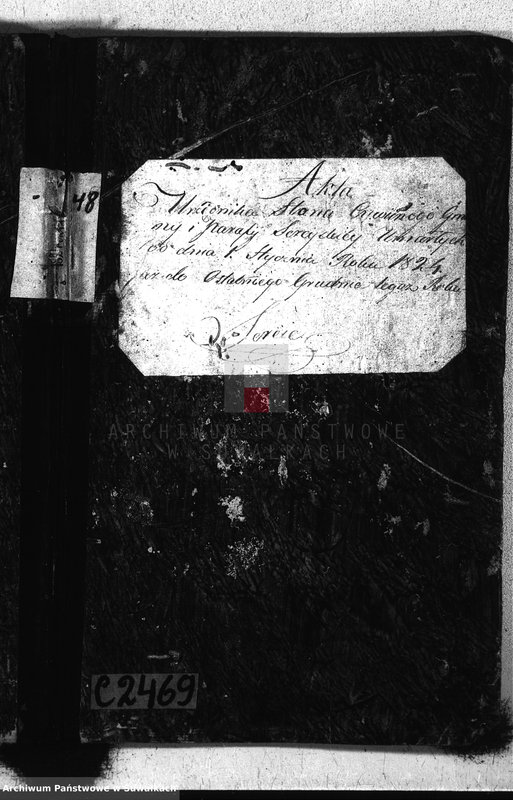 48
Akta
Urzędnika Stanu Cywilnego Gmi
ny i Parafij Sereyskiey Umarłych
od dnia 1. Stycznia Roku 1824.
aż do Ostatniego Grudnia tegoż Roku
Sereie
ARCHIWUM PAŃSTWOWE
W SUWAŁKACH
C2469
Archiwum Państwowe w Suwałkach